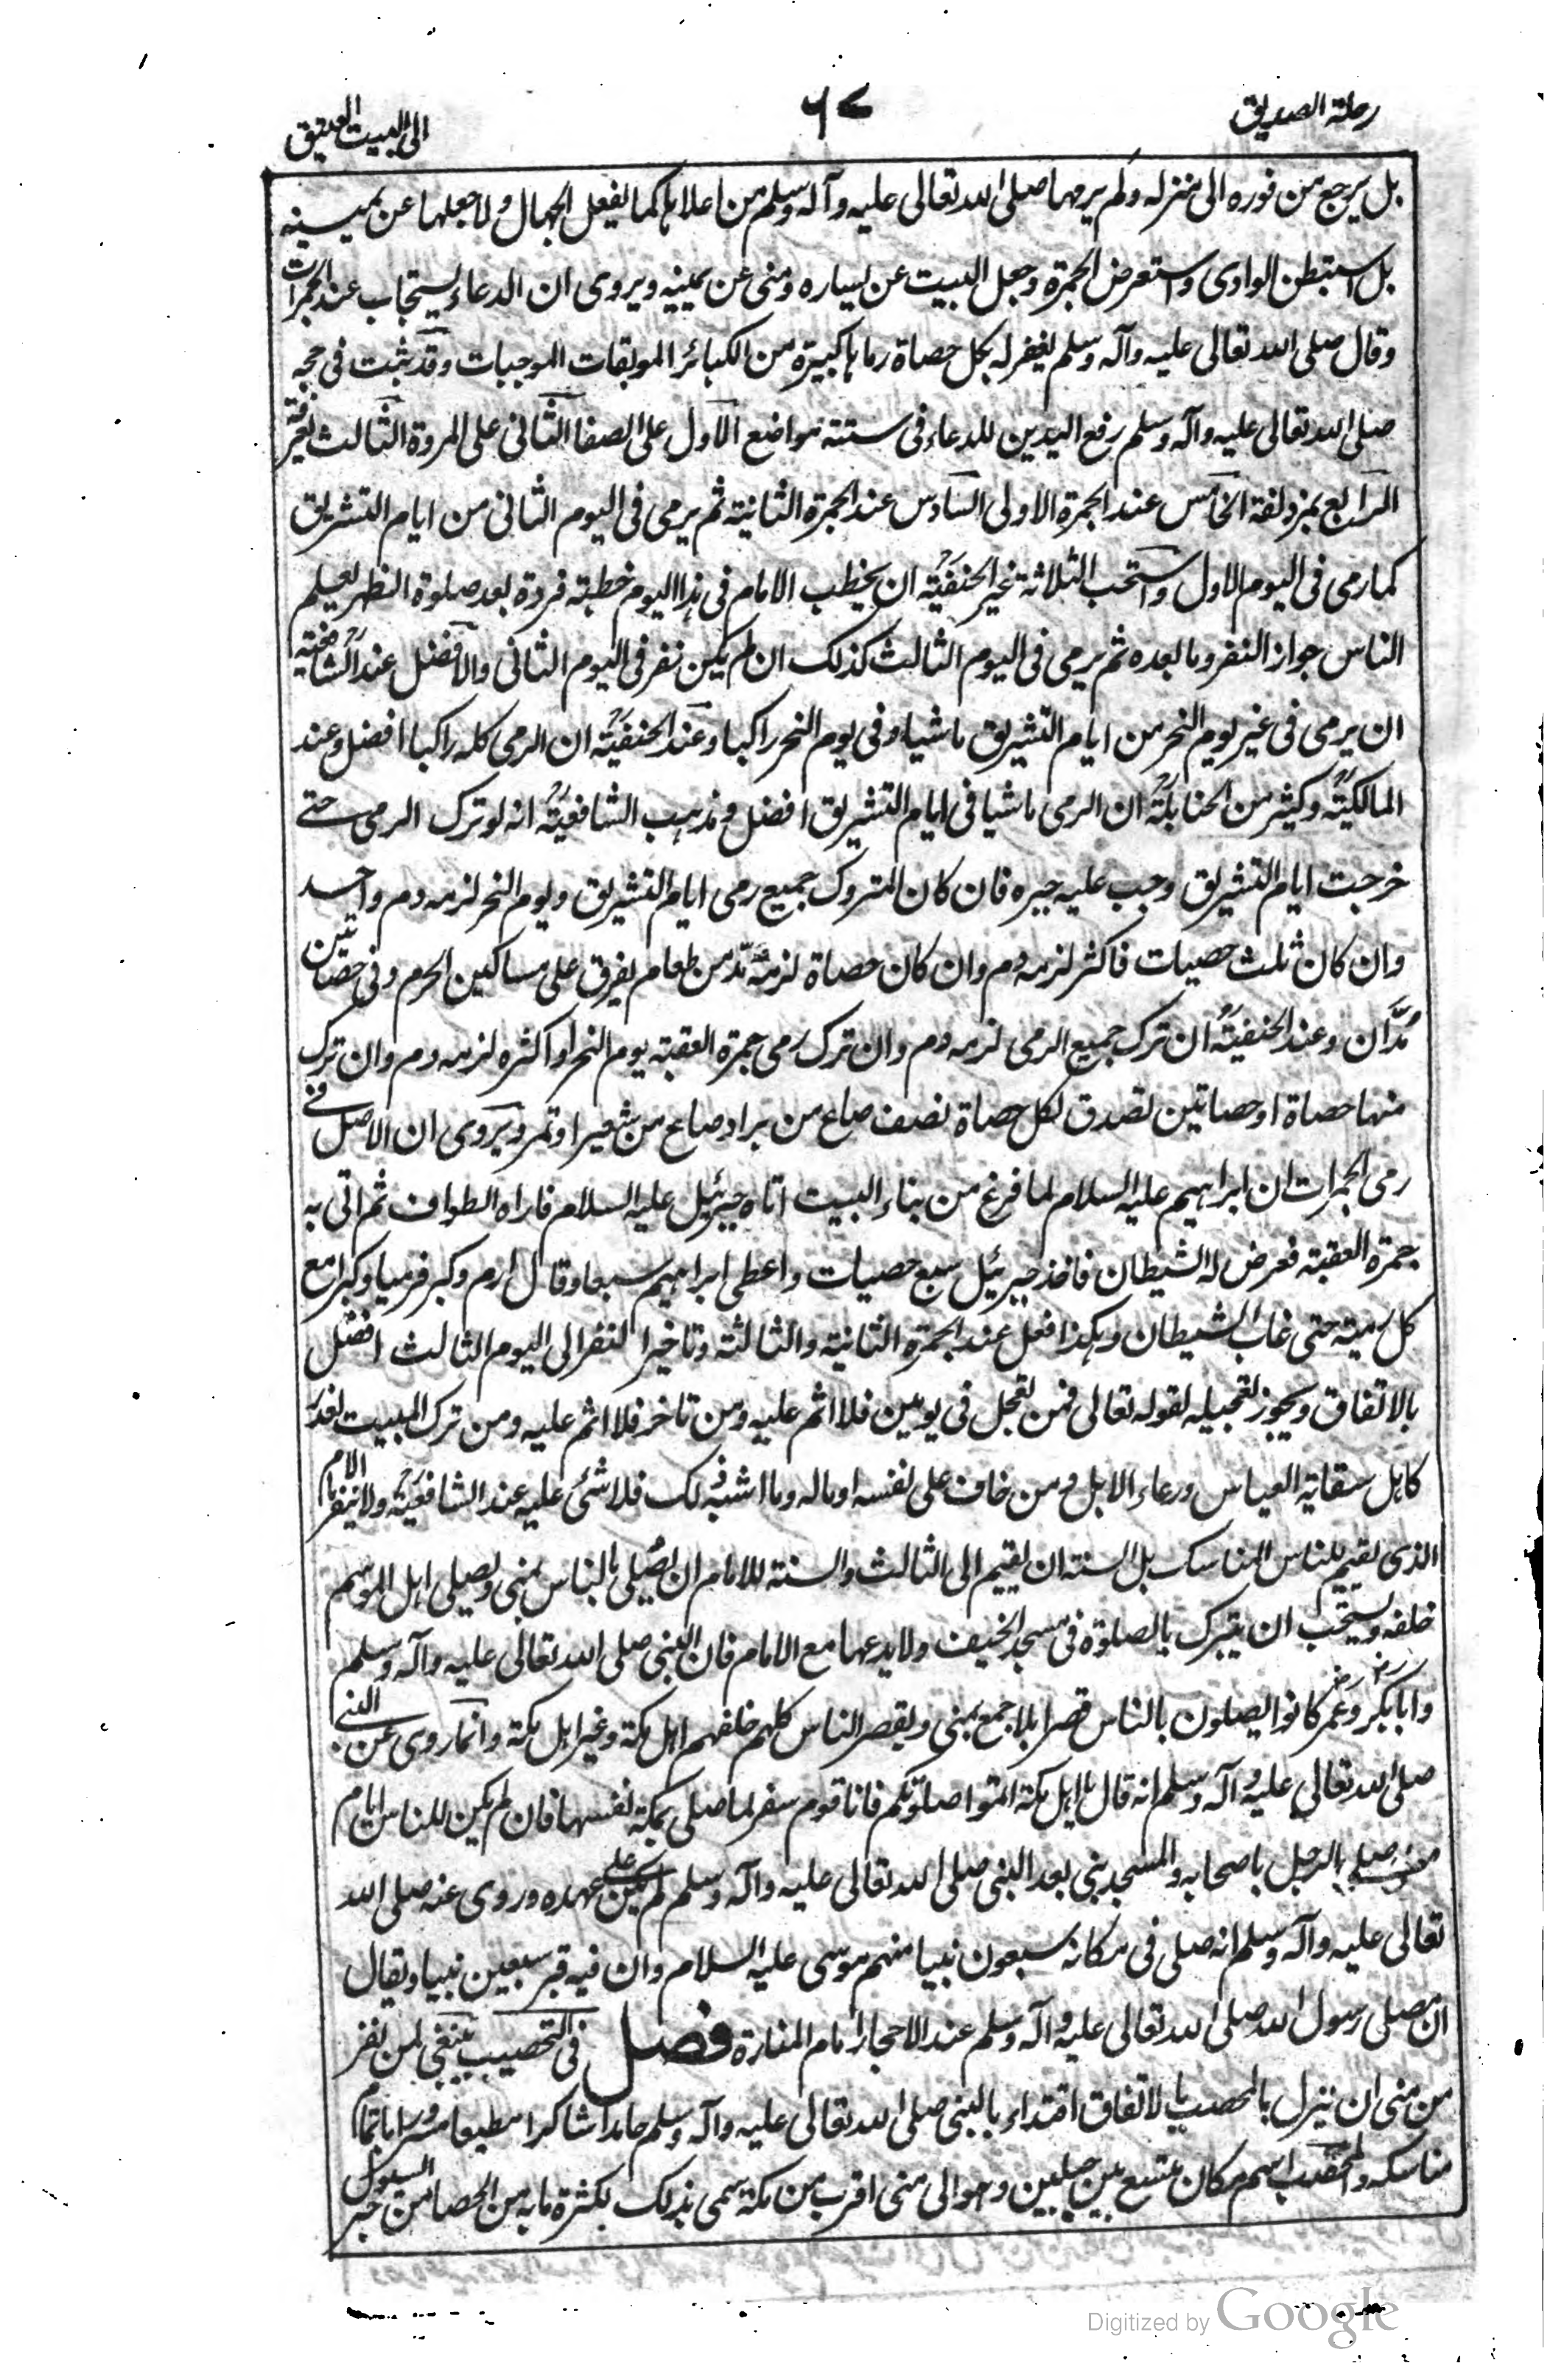 رحلة الصديق
٦٧
الى البيت العتيق
بل يرجع من فوره الى منزله ولم يرمها صلى الله تعالى عليه وآله وسلم من اعلاها كما يفعل الجهال ولا جعلها عن يمينه
بل استبطن الوادى واستعرض الجمرة وجعل البيت عن يساره ومنى عن يمينه ويروى ان الدعاء يستجاب عند الجمرات
وقال صلى الله تعالى عليه وآله وسلم يغفر له بكل حصاة رماها كبيرة من الكبائر الموبقات الموجبات وقد ثبت فى حجه
صلى الله تعالى عليه وآله وسلم رفع اليدين للدعاء فى ستة مواضع الاول على الصفا الثانى على المروة الثالث بعرفة
الرابع بمزدلفة الخامس عند الجمرة الاولى السادس عند الجمرة الثانية ثم يرمى فى اليوم الثانى من ايام التشريق
كما رمى فى اليوم الاول واستحب الثلاثة غير الحنفية ان يخطب الامام فى هذا اليوم خطبة فردة بعد صلوة الظهر يعلم
الناس جواز النفر وما بعده ثم يرمى فى اليوم الثالث كذلك ان لم يكن نفر فى اليوم الثانى والافضل عند الشافعية
ان يرمى فى غير يوم النحر من ايام التشريق ماشيا وفى يوم النحر راكبا وعند الحنفية ان الرمى كله راكبا افضل وعند
المالكية وكثير من الحنابلة ان الرمى ماشيا فى ايام التشريق افضل ومذهب الشافعية انه لو ترك الرمى حتى
خرجت ايام التشريق وجب عليه جبره فان كان المتروك جميع رمى ايام التشريق ويوم النحر لزمه دم واحد
وان كان ثلث حصيات فاكثر لزمه دم وان كان حصاة لزمه مد من طعام يفرق على مساكين الحرم وفى حصاتين
مُدَّان وعند الحنفية ان ترك جميع الرمى لزمه دم وان ترك رمى جمرة العقبة يوم النحر او اكثره لزمه دم وان ترك
منها حصاة او حصاتين تصدق لكل حصاة نصف صاع من بر او صاع من شعير او تمر ويروى ان الاصل فى
رمى الجمرات ان ابراهيم عليه السلام لما فرغ من بناء البيت اتاه جبرئيل عليه السلام فاراه الطواف ثم اتى به
جمرة العقبة فعرض له الشيطان فاخذ جبرئيل سبع حصيات واعطى ابراهيم سبعا وقال ارم وكبر فرميا وكبرا مع
كل رمية حتى غاب الشيطان وهكذا فعل عند الجمرة الثانية والثالثة وتاخير النفر الى اليوم الثالث افضل
بالاتفاق ويجوز تعجيله لقوله تعالى فمن تعجل فى يومين فلا اثم عليه ومن تاخر فلا اثم عليه ومن ترك المبيت لعذر
كاهل سقاية العباس ورعاء الابل و من خاف على نفسه او ماله وما اشبه ذلك فلا شئ عليه عند الشافعية ولا ينفر الامام
الذى يقيم للناس المناسك بل السنة ان يقيم الى الثالث والسنة للامام ان يصلى بالناس بمنى ويصلى اهل الموسم
خلفه ويستحب ان يتبرك بالصلوة فى مسجد الخيف ولا يدعها مع الامام فان النبى صلى الله تعالى عليه وآله وسلم
وابا بكر وعمر كانوا يصلون بالناس قصرا بلا جمع بمنى ويقصر الناس كلهم خلفهم اهل مكة وغير اهل مكة وانما روى عن النبى
صلى الله تعالى عليه وآله وسلم انه قال يا اهل مكة اتموا صلوتكم فانا قوم سفر لما صلى بمكة نفسها فان لم يكن للناس امام
صلى الرجل باصحابه والمسجد بنى بعد النبى صلى الله تعالى عليه وآله وسلم لم يكن على عهده وروى عنه صلى الله
تعالى عليه وآله وسلم انه صلى فى مكانه سبعون نبيا منهم موسى عليه السلام وان فيه قبر سبعين نبيا ويقال
ان مصلى رسول الله صلى الله تعالى عليه وآله وسلم عند الاحجار امام المنارة فصل فى التحصيب ينبغى لمن نفر
من منى ان ينزل بالمحصب بالاتفاق اقتداء بالنبى صلى الله تعالى عليه وآله وسلم حامدا شاكرا مطيعا مسرورا باتمام
مناسكه والمحصب اسم مكان متسع بين جبلين وهو الى منى اقرب من مكة سمى بذلك لكثرة ما به من الحصا من جر السيول
Digitized by Google